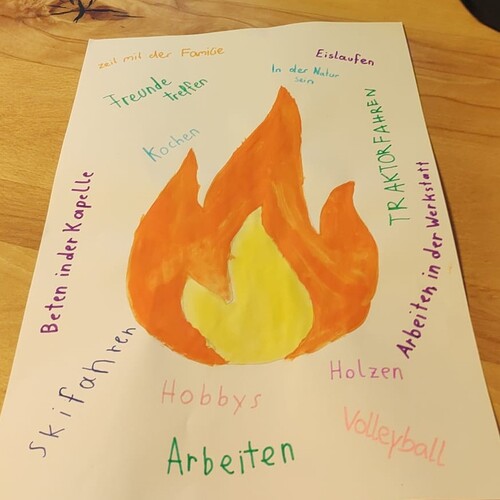 zeit mit der Familie
Eislaufen
In der Natur
sein
Freunde
treffen
Kochen
TRAKTORFAHREN
Beten in der Kapelle
Arbeiten in der Werkstatt
Skifahren
Holzen
Hobbys
Volleyball
Arbeiten